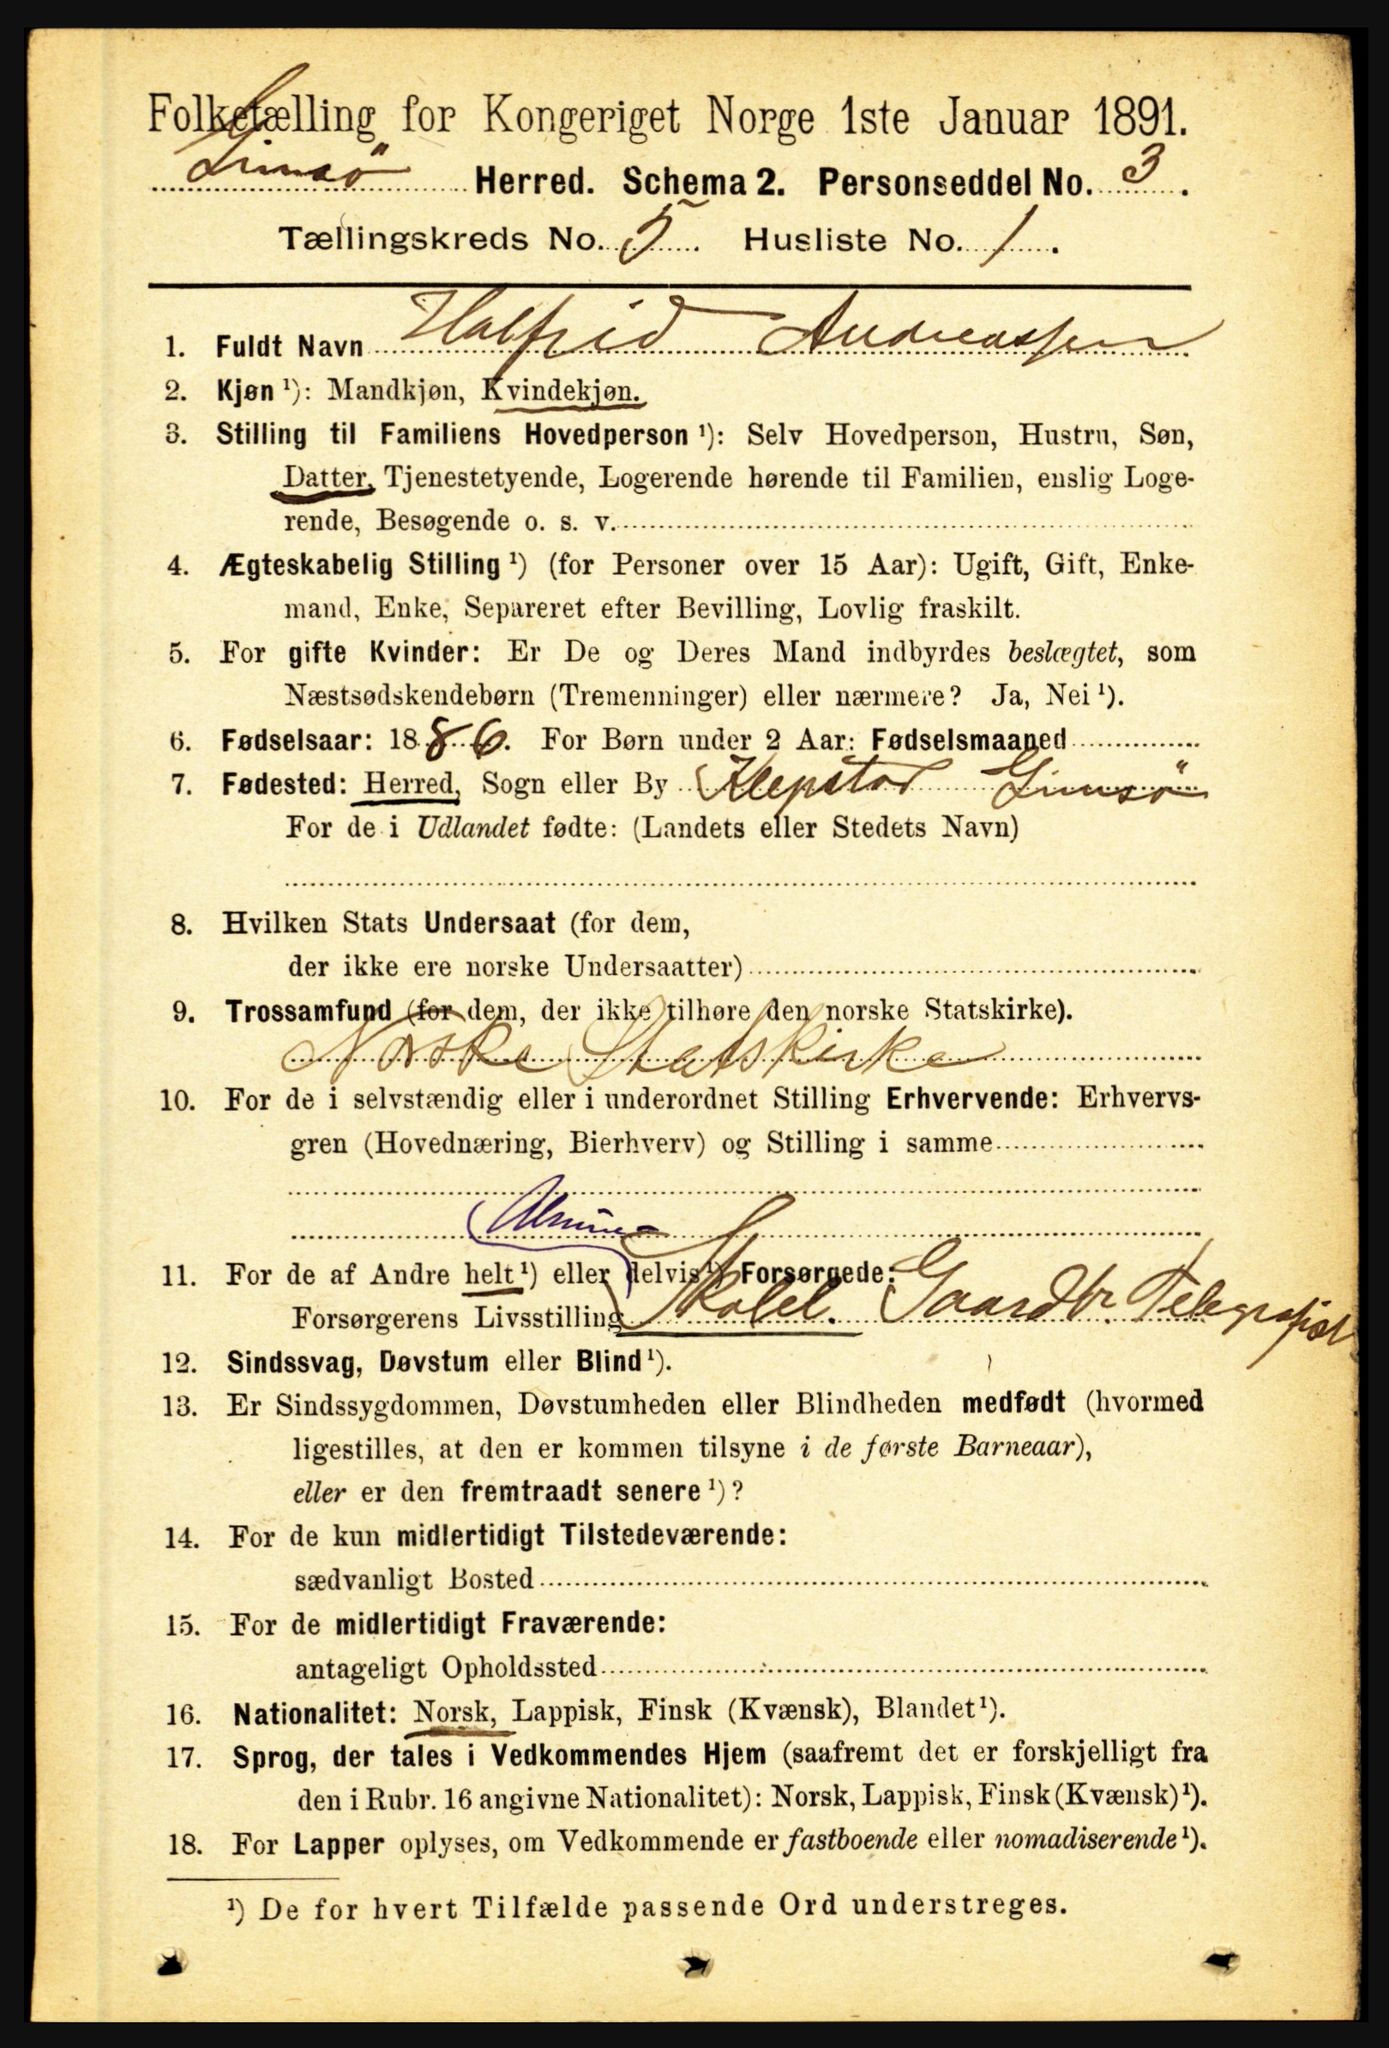 Folketælling for Kongeriget Norge 1ste Januar 1891.
Gimsö Herred. Schema 2. Personseddel No. 3.
Tællingskreds No. 5. Husliste No. 1.
1. Fuldt Navn Halfrid Andreassen
2. Kjøn ¹): Mandkjøn, Kvindekjøn.
3. Stilling til Familiens Hovedperson ¹): Selv Hovedperson, Hustru, Søn,
Datter, Tjenestetyende, Logerende hørende til Familien, enslig Loge-
rende, Besøgende o. s. v.
4. Ægteskabelig Stilling ¹) (for Personer over 15 Aar): Ugift, Gift, Enke-
mand, Enke, Separeret efter Bevilling, Lovlig fraskilt.
5. For gifte Kvinder: Er De og Deres Mand indbyrdes beslægtet, som
Næstsødskendebørn (Tremenninger) eller nærmere? Ja, Nei ¹).
6. Fødselsaar: 1886. For Børn under 2 Aar: Fødselsmaaned
7. Fødested: Herred, Sogn eller By Klepstad Gimsö
For de i Udlandet fødte: (Landets eller Stedets Navn)
8. Hvilken Stats Undersaat (for dem,
der ikke ere norske Undersaatter)
9. Trossamfund (for dem, der ikke tilhøre den norske Statskirke).
Norske Statskirke
10. For de i selvstændig eller i underordnet Stilling Erhvervende: Erhvervs-
gren (Hovednæring, Bierhverv) og Stilling i samme
11. For de af Andre helt ¹) eller delvis ¹) Forsørgede:
Forsørgerens Livsstilling Skolel. Gaardbr. Telegrafist
12. Sindssvag, Døvstum eller Blind ¹).
13. Er Sindssygdommen, Døvstumheden eller Blindheden medfødt (hvormed
ligestilles, at den er kommen tilsyne i de første Barneaar),
eller er den fremtraadt senere ¹)?
14. For de kun midlertidigt Tilstedeværende:
sædvanligt Bosted
15. For de midlertidigt Fraværende:
antageligt Opholdssted
16. Nationalitet: Norsk, Lappisk, Finsk (Kvænsk), Blandet ¹).
17. Sprog, der tales i Vedkommendes Hjem (saafremt det er forskjelligt fra
den i Rubr. 16 angivne Nationalitet): Norsk, Lappisk, Finsk (Kvænsk) ¹).
18. For Lapper oplyses, om Vedkommende er fastboende eller nomadiserende ¹).
¹) De for hvert Tilfælde passende Ord understreges.